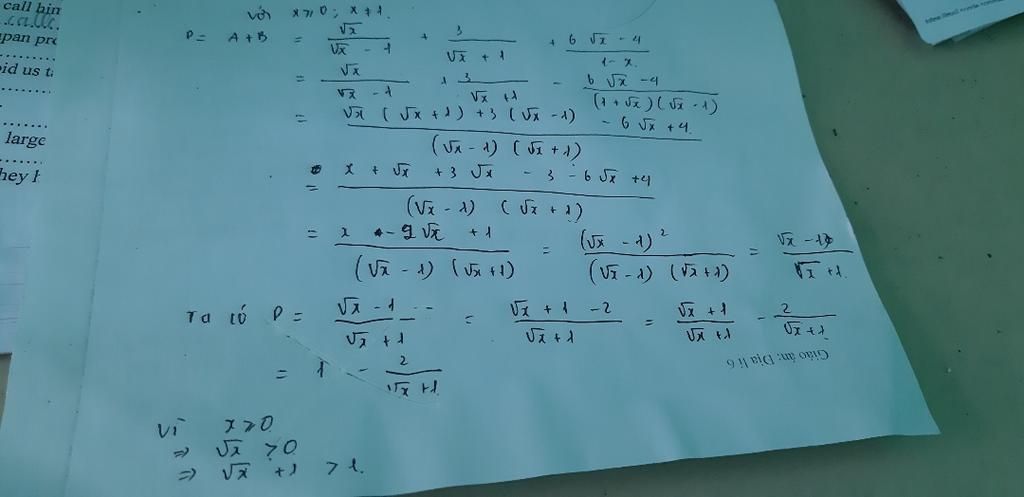 call him
calle
apan pre
oid us t
large
hey h
với x ⩾ 0 ; x ≠ 1.
P = A + B = √x/(√x - 1) + 3/(√x + 1) + (6√x - 4)/(1 - x)
= √x/(√x - 1) + 3/(√x + 1) - (6√x - 4)/((1 + √x)(√x - 1))
= (√x (√x + 1) + 3 (√x - 1) - 6√x + 4)/((√x - 1) (√x + 1))
= (x + √x + 3√x - 3 - 6√x + 4)/((√x - 1) (√x + 1))
= (x - 2√x + 1)/((√x - 1) (√x + 1)) = (√x - 1)²/((√x - 1) (√x + 1)) = (√x - 1)/(√x + 1)
Ta có P = (√x - 1)/(√x + 1) = (√x + 1 - 2)/(√x + 1) = (√x + 1)/(√x + 1) - 2/(√x + 1)
= 1 - 2/(√x + 1)
Giáo án: Địa lí 6
Vì x ⩾ 0
⇒ √x ⩾ 0
⇒ √x + 1 ⩾ 1.